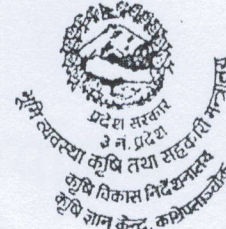 प्रदेश सरकार
३ नं. प्रदेश
भूमि व्यवस्था कृषि तथा सहकारी मन्त्रालय
कृषि विकास निर्देशनालय
कृषि ज्ञान केन्द्र, काभ्रेपलाञ्चोक